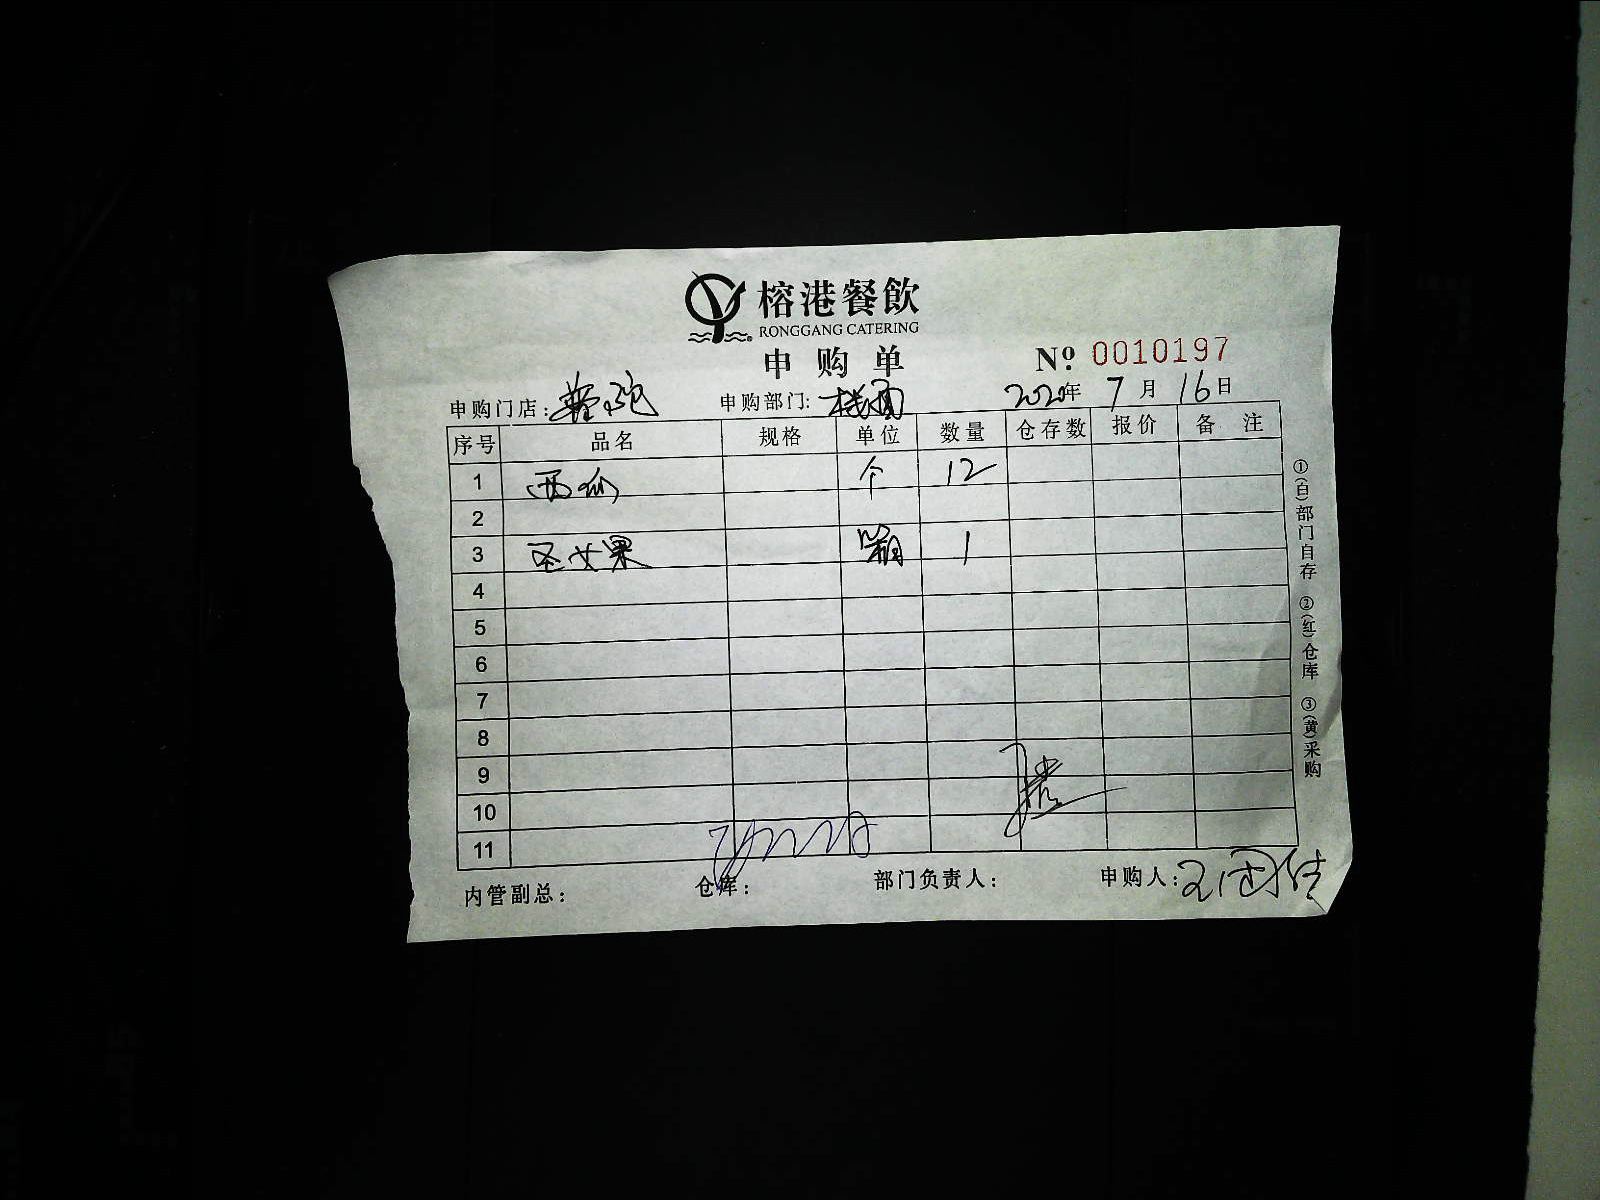 榕港餐飲
RONGGANG CATERING
申购单
№ 0010197
申购门店: 申购部门: 楼面 2020年 7月 16日
序号 品名 规格 单位 数量 仓存数 报价 备注
1 西仙 个 12
2
3 圣女果 箱 1
4
5
6
7
8
9
10
11
内管副总: 仓库: 部门负责人: 申购人:
①(白)部门自存 ②(红)仓库 ③(黄)采购